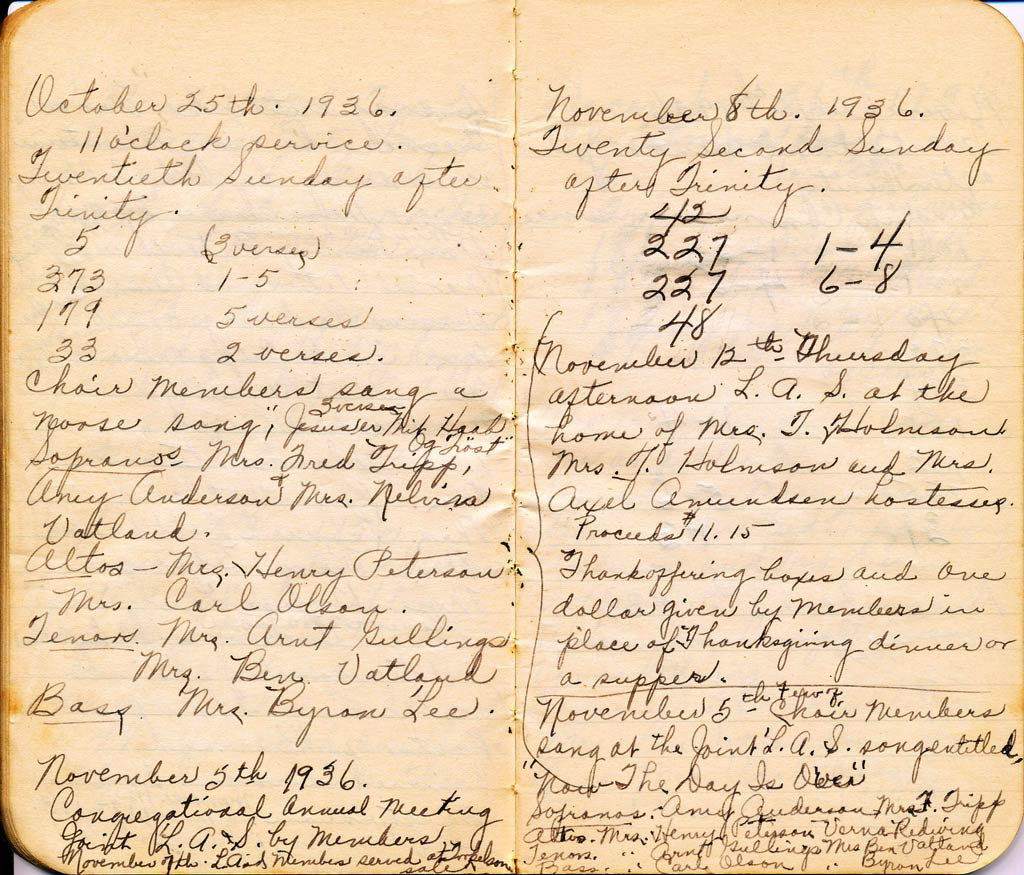 October 25th. 1936.
11 o'clock service.
Twentieth Sunday after
Trinity.
5 (3 verses)
273 1-5
179 5 verses
33 2 verses.
Choir Members sang a
Norse song, "Jesus er Mit Haab
3 verses
Og Trøst"
Sopranos Mrs. Fred Tripp,
Amy Anderson & Mrs. Kelvin
Vatland.
Altos - Mrs. Henry Peterson
Mrs. Carl Olson.
Tenors. Mrs. Arnt Gullings
Mrs. Ben Vatland
Bass Mrs. Byron Lee.
November 5th 1936.
Congregational Annual Meeting
Joint L. A. S. by Members
November 7th. L. Aid Members served at
sale
November 8th. 1936.
Twenty Second Sunday
after Trinity.
42
227 1-4
227 6-8
48
November 12th Thursday
afternoon L. A. S. at the
home of Mrs. T. Holmson.
Mrs. T. Holmson and Mrs.
Axel Amundsen hostesses.
Proceeds $11.15
Thankoffering boxes and one
dollar given by Members in
place of Thanksgiving dinner or
a supper.
November 5th Few of Choir Members
sang at the Joint L. A. S. song entitled,
"Now The Day Is Over"
Sopranos. Amy Anderson Mrs F. Tripp
Altos. Mrs. Henry Peterson Verna Rediving
Tenors. " Arnt Gullings Mrs Ben Vatland
Bass. " Carl Olson " Byron Lee